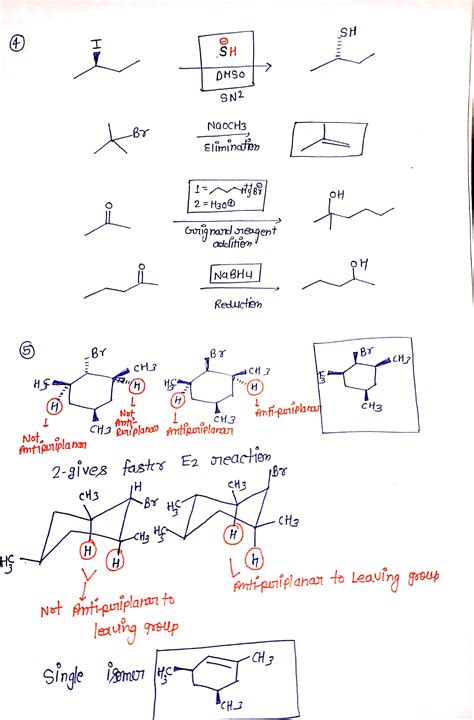 ④
I
⊖
SH
DMSO
SN2
SH
Br
NaOCH3
Elimination
O
1 = MgBr
2 = H3O⊕
Grignard reagent
addition
OH
O
NaBH4
Reduction
OH
⑤
Br
CH3
H3C
H
H
CH3
Not
Antiperiplanar
Not
Anti
periplanar
Br
CH3
H3C
H
H
CH3
Antiperiplanar
Antiperiplanar
Br
CH3
CH3
2-gives faster E2 reaction
CH3
H
Br
CH3
H3C
H
H
Not Antiperiplanar to
leaving group
CH3
Br
H3C
CH3
H
H
Antiperiplanar to Leaving group
Single isomer
H3C
CH3
CH3